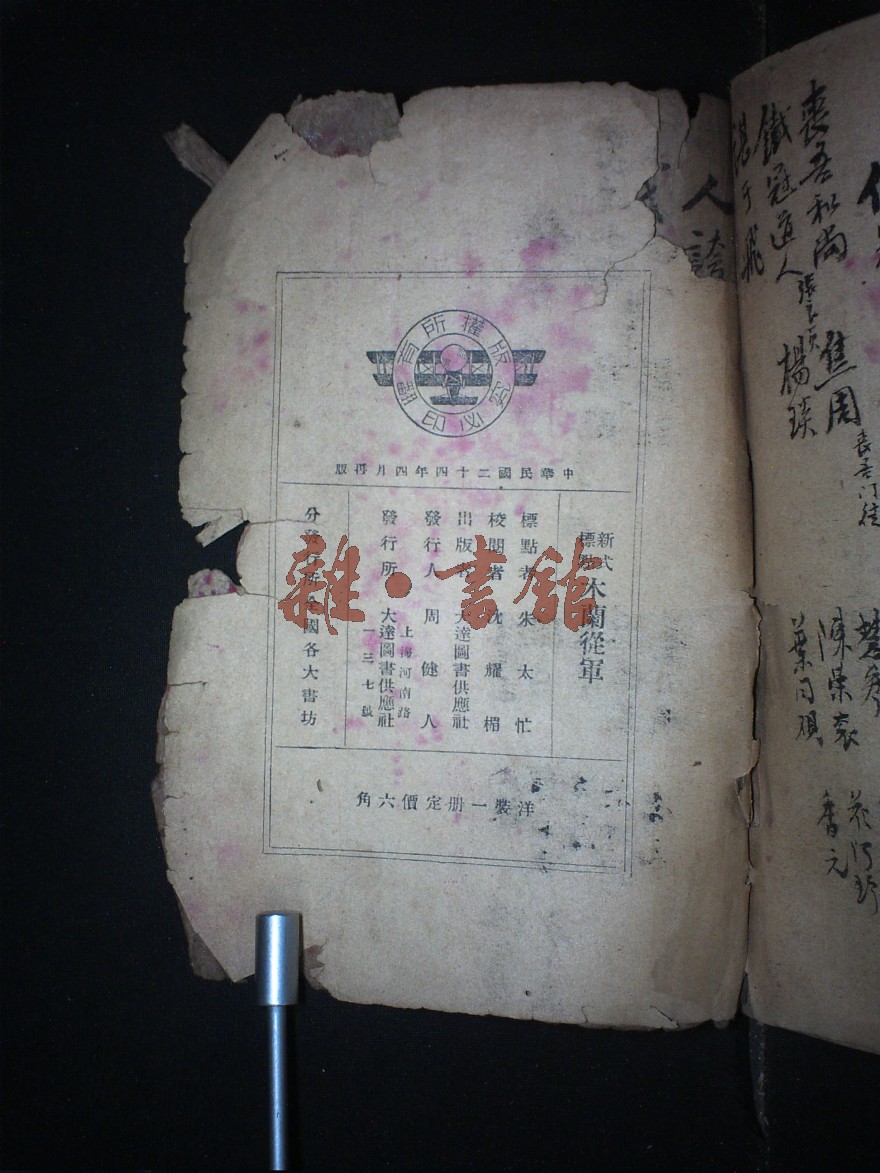 版權所有
翻印必究
中華民國二十四年四月再版
新式標點 木蘭從軍
標點者 朱太忙
校閱者 沈耀楣
出版者 大達圖書供應社
發行人 周健人
發行所 上海河南路一三七號 大達圖書供應社
分發行所 全國各大書坊
洋裝一册定價六角
雜·書館
喪吾和尚 焦周
鐵冠道人 楊琰
人誇